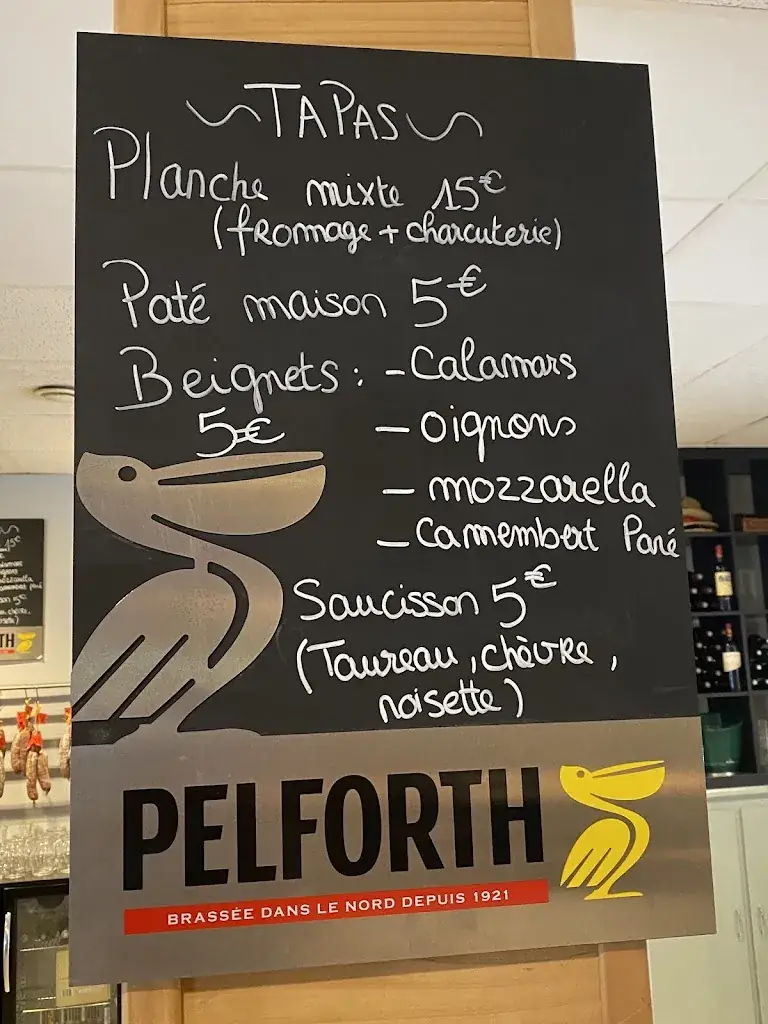 TAPAS
Planche mixte 15€
(fromage + charcuterie)
Paté maison 5€
Beignets : - Calamars
5€ - oignons
- mozzarella
- Camembert Pané
Saucisson 5€
(Taureau, chèvre,
noisette)
PELFORTH
BRASSÉE DANS LE NORD DEPUIS 1921